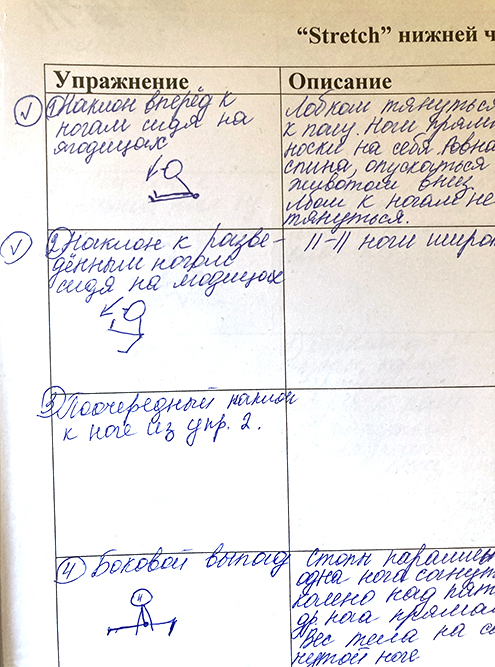 “Stretch” нижней ч
Упражнение
Описание
1 Наклон вперёд к
ногам сидя на
ягодицах
Лобком тянуться
к полу. Ноги прямы
носки на себя. Ровна
спина, опускаться
животом вниз.
Лбом к ногам не
тянуться.
2 Наклон к разве-
дённым ногам
сидя на ягодицах
11-11 ноги широ
3 Поочередный наклон
к ноге из упр. 2.
4 Боковой выпад
Стопы параллел
одна нога согнут
колено над пят
др нога прямая
Вес тела на со
гнутой ноге